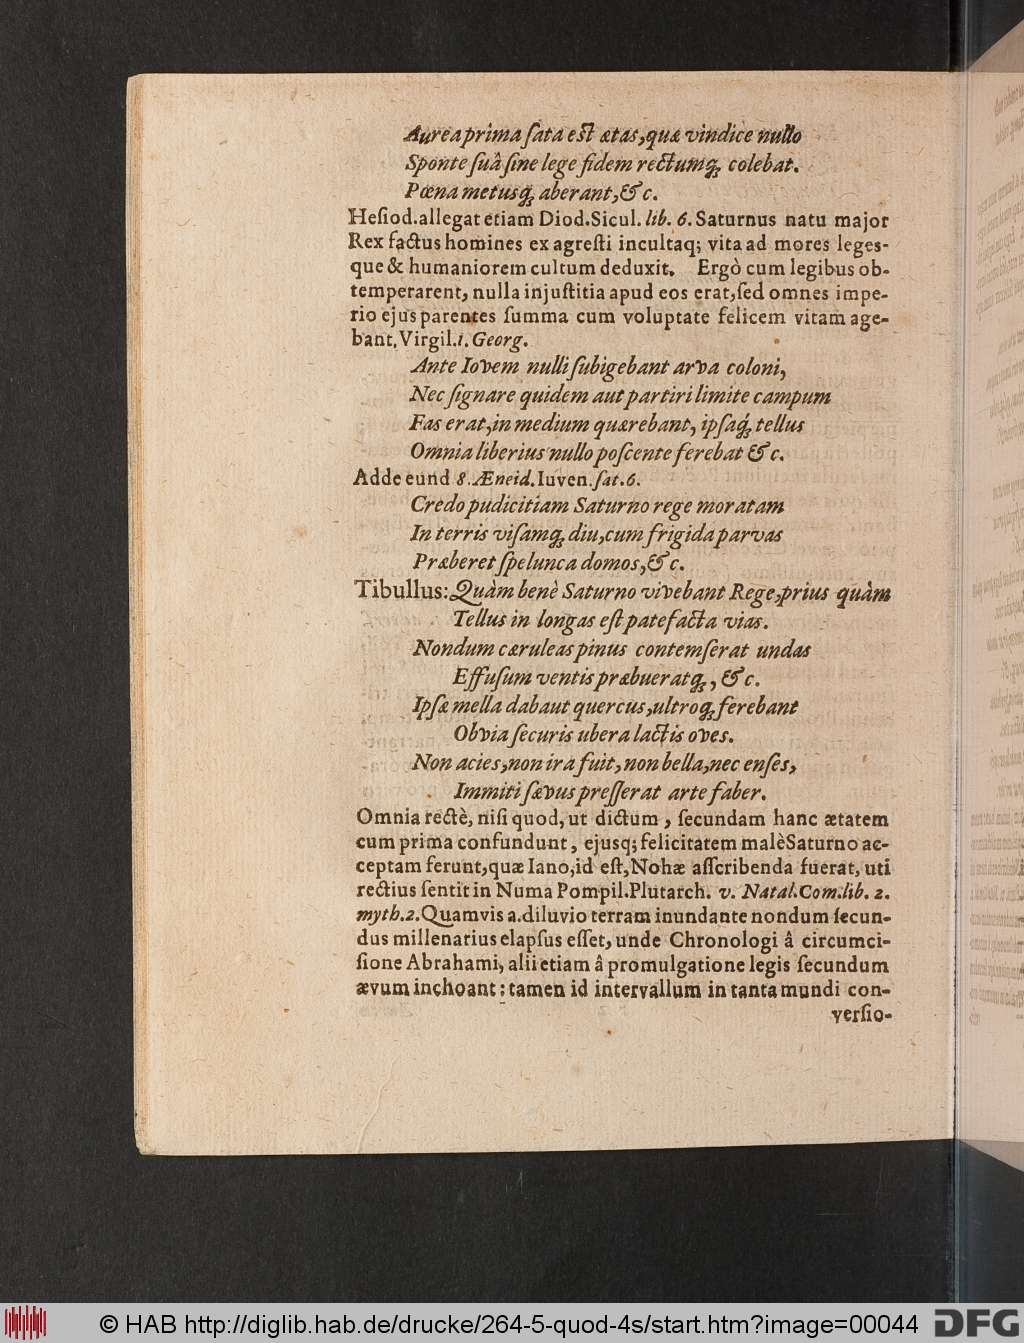 Aurea prima sata est ætas, quæ vindice nullo
Sponte suâ sine lege fidem rectumq́; colebat.
Pœna metusq́; aberant, & c.
Hesiod. allegat etiam Diod. Sicul. lib. 6. Saturnus natu major
Rex factus homines ex agresti incultaq; vita ad mores leges-
que & humaniorem cultum deduxit. Ergò cum legibus ob-
temperarent, nulla injustitia apud eos erat, sed omnes impe-
rio ejus parentes summa cum voluptate felicem vitam age-
bant. Virgil. 1. Georg.
Ante Iovem nulli subigebant arva coloni,
Nec signare quidem aut partiri limite campum
Fas erat, in medium quærebant, ipsaq́; tellus
Omnia liberius nullo poscente ferebat & c.
Adde eund 8. Æneid. Iuven. sat. 6.
Credo pudicitiam Saturno rege moratam
In terris visamq́; diu, cum frigida parvas
Præberet spelunca domos, & c.
Tibullus: Quàm benè Saturno vivebant Rege, prius quàm
Tellus in longas est patefacta vias.
Nondum cæruleas pinus contemserat undas
Effusum ventis præbueratq́;, & c.
Ipsæ mella dabaut quercus, ultroq́; ferebant
Obvia securis ubera lactis oves.
Non acies, non ira fuit, non bella, nec enses,
Immiti sævus presserat arte faber.
Omnia rectè, nisi quod, ut dictum, secundam hanc ætatem
cum prima confundunt, ejusq; felicitatem malè Saturno ac-
ceptam ferunt, quæ Iano, id est, Nohæ asscribenda fuerat, uti
rectius sentit in Numa Pompil. Plutarch. v. Natal. Com. lib. 2.
myth. 2. Quamvis a. diluvio terram inundante nondum secun-
dus millenarius elapsus esset, unde Chronologi â circumci-
sione Abrahami, alii etiam â promulgatione legis secundum
ævum inchoant: tamen id intervallum in tanta mundi con-
versio-
© HAB http://diglib.hab.de/drucke/264-5-quod-4s/start.htm?image=00044
DFG